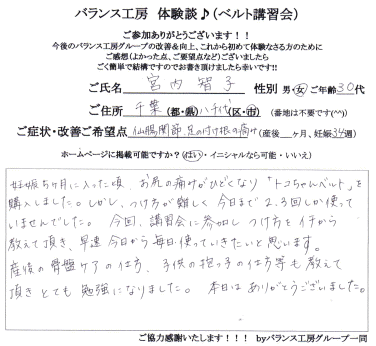 バランス工房 体験談♪(ベルト講習会)
ご参加ありがとうございます!!
今後のバランス工房グループの改善&向上、これから初めて体験なさる方のために
ご感想(よかった点、ご要望点など)ございましたら
ごく簡単で結構ですのでお書き頂けましたら幸いです!!
ご氏名 宮内 智子 性別 男・女 ご年齢30代
ご住所 千葉(都・県)八千代(区・市) (番地は不要です(^^))
ご症状・改善ご希望点 仙腸関節、足の付け根の痛み (産後 ヶ月、妊娠34週)
ホームページに掲載可能ですか?(はい・イニシャルなら可能・いいえ)
妊娠5ヶ月に入った頃、お尻の痛みがひどくなり「トコちゃんベルト」を
購入しました。しかし、つけ方が難しく今日まで2,3回しか使って
いませんでした。今回、講習会に参加しつけ方をイチから
教えて頂き、早速今日から毎日使っていきたいと思います。
産後の骨盤ケアの仕方、子供の抱っこの仕方等も教えて
頂きとても勉強になりました。本日はありがとうございました。
ご協力感謝いたします!!! byバランス工房グループ一同